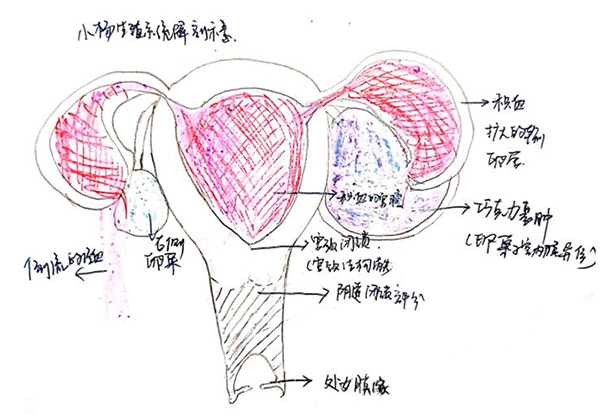 小杨生殖系统解剖示意
积血
扩大的输卵管
积血的宫腔
巧克力囊肿
(卵巢子宫内膜异位)
右侧
卵巢
倒流的经血
宫颈闭锁
(宫颈结构缺失)
阴道闭锁部分
处女膜缘